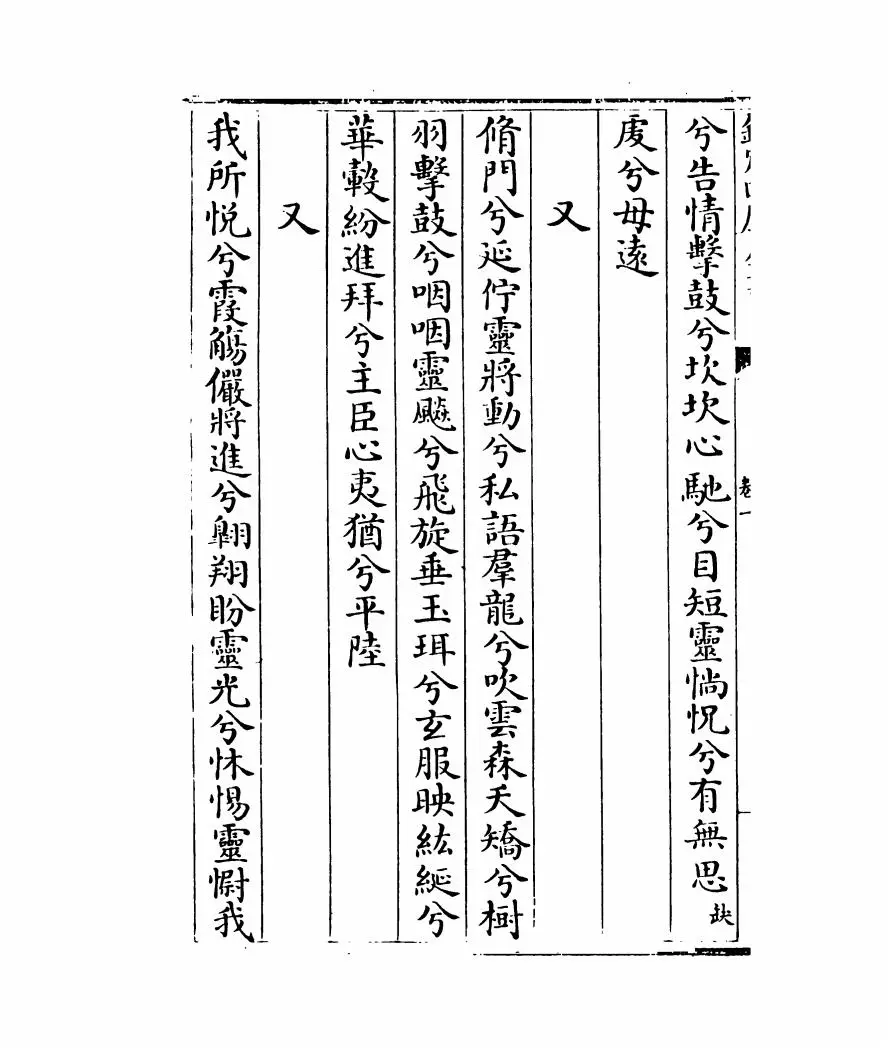 兮告情擊鼓兮坎坎心馳兮目短靈惝怳兮有無思缺
䖍兮毋遠
又
脩門兮延佇靈將動兮私語羣龍兮吹雲森夭矯兮樹
羽擊鼓兮咽咽靈飈兮飛旋垂玉珥兮玄服映紘綖兮
華轂紛進拜兮主臣心夷猶兮平陸
又
我所悦兮霞觴儼將進兮翺翔盼靈光兮怵惕靈慰我
卷一